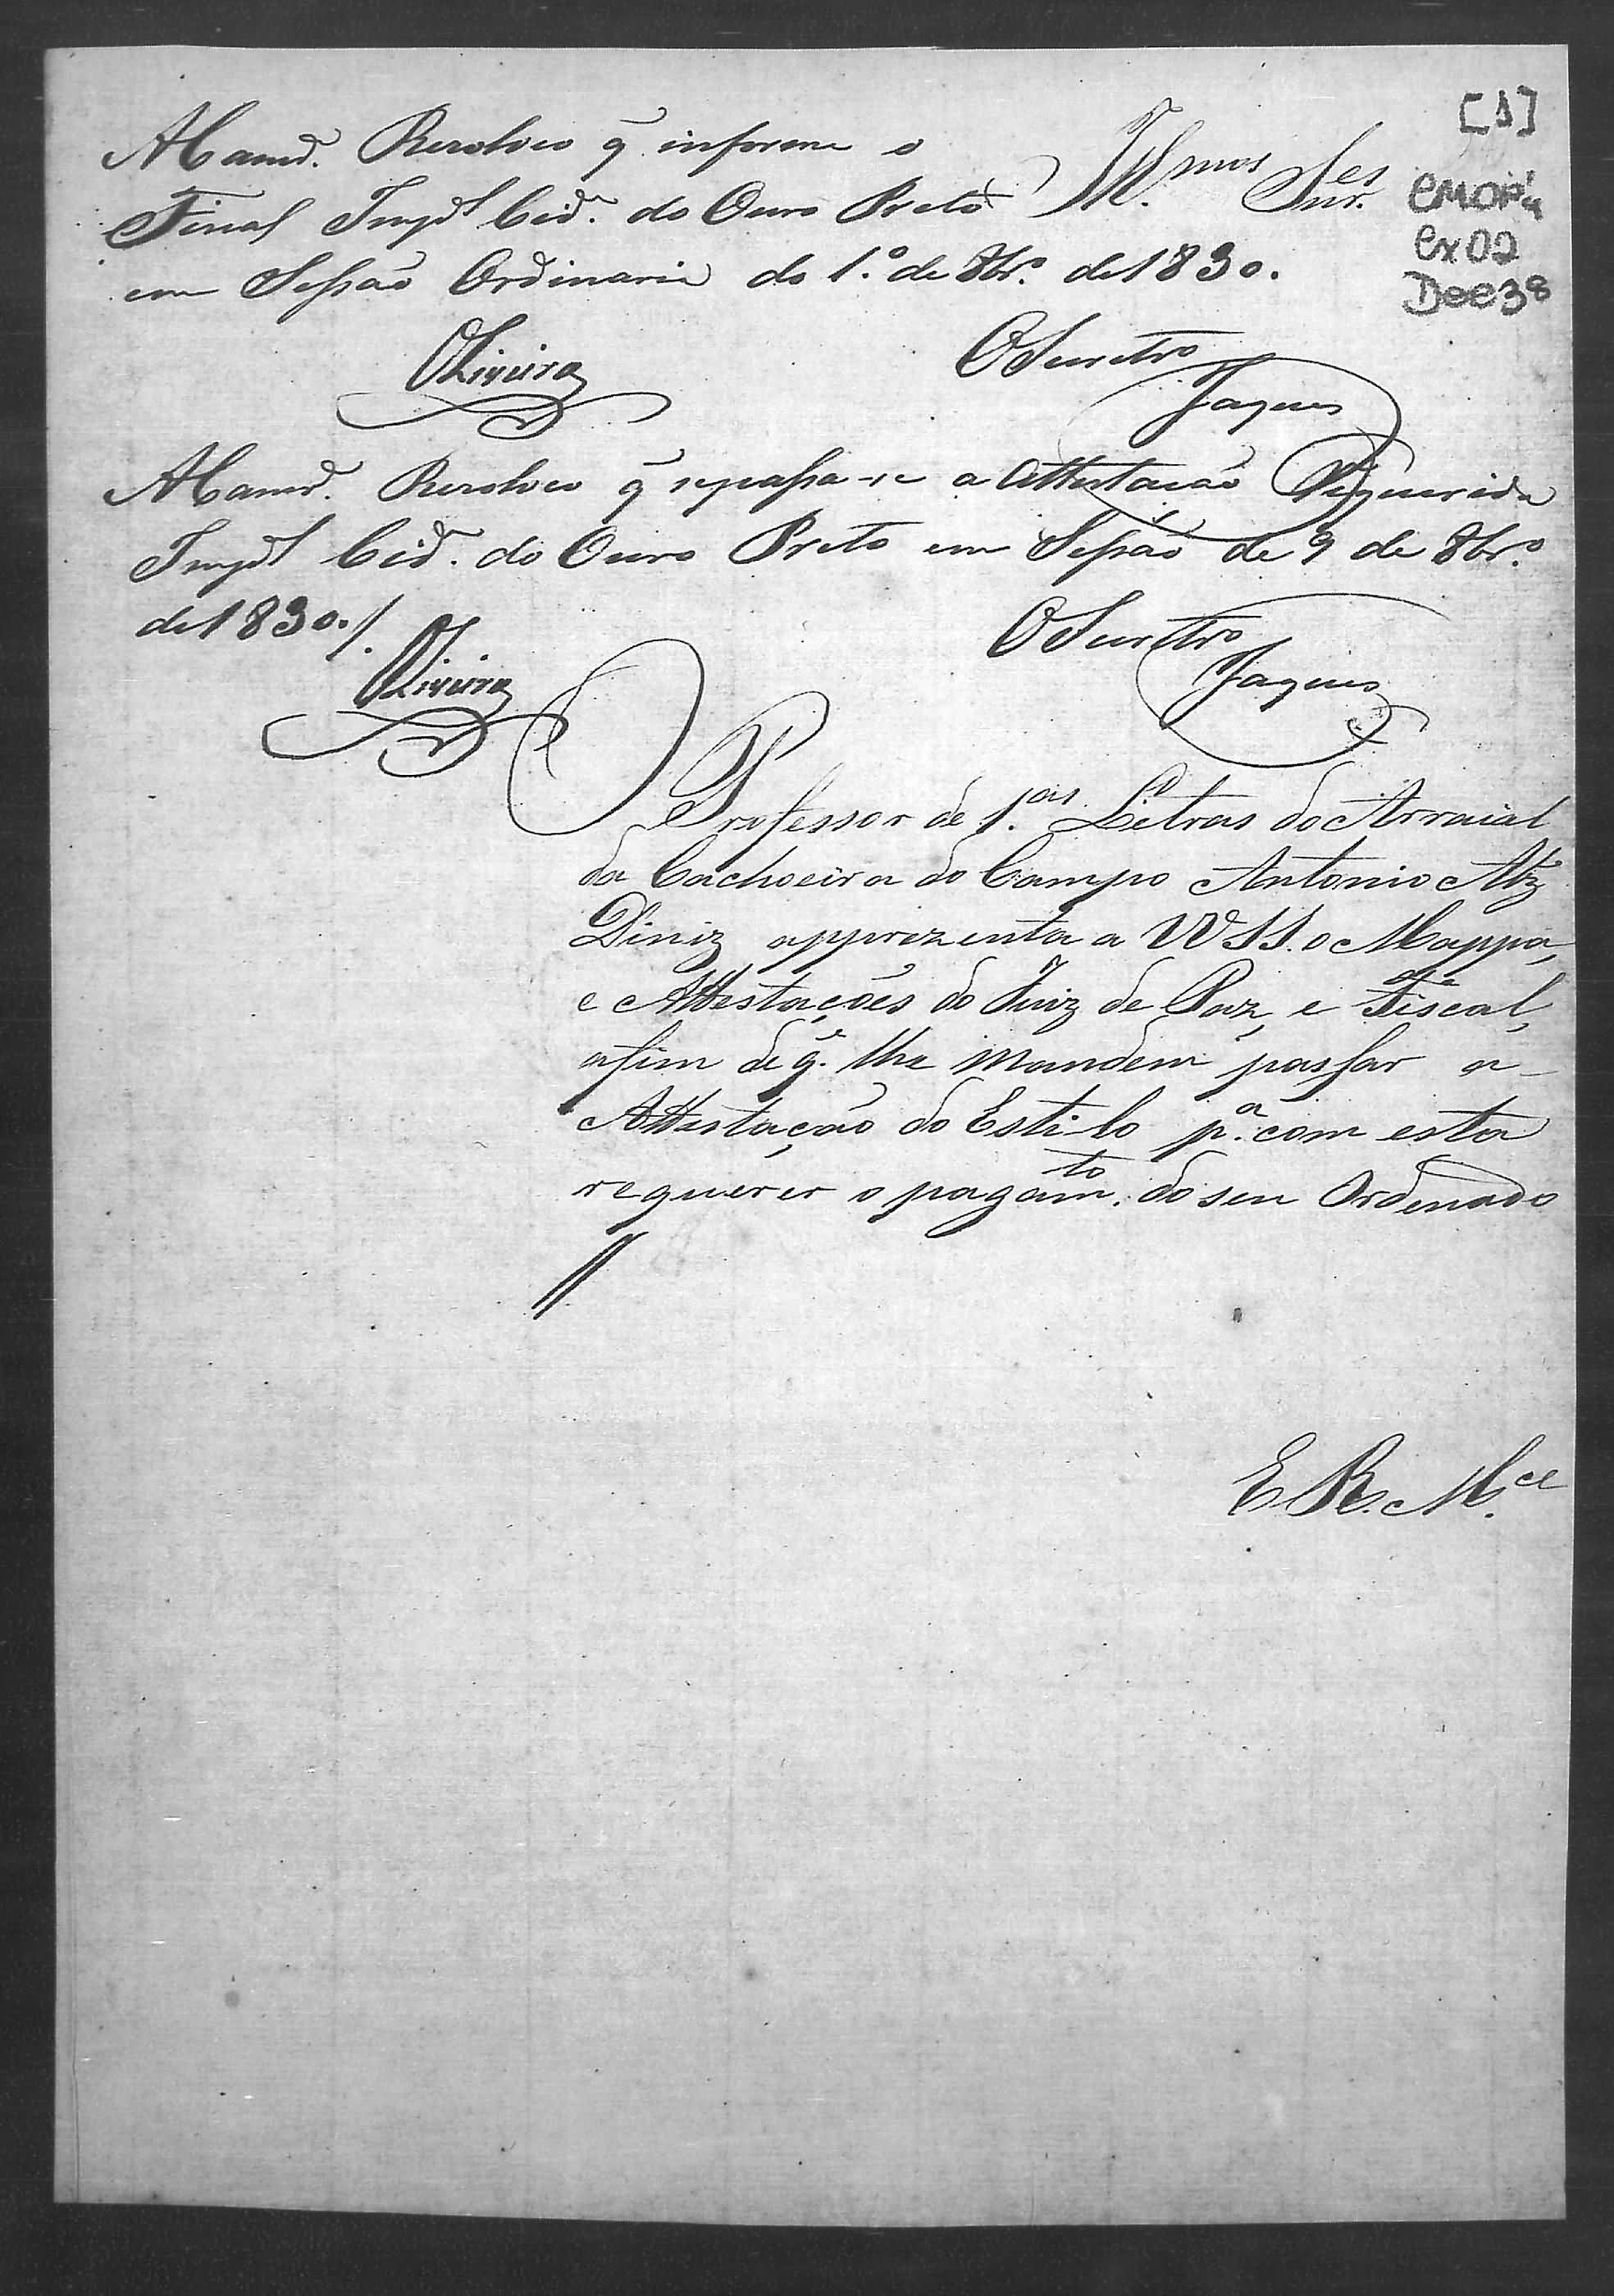 [1]
A Camrᵃ. Resolveo q̃ informe o
Fiscal Impᵃˡ Cidᵉ. do Ouro Preto
em Sessão Ordinaria do 1.º de 8brº. de 1830.
Illᵐᵒˢ. Snrᵉˢ.
CMOP
Cx 02
Doc 38
Oliveira
O Secretrº
Jaques
A Camrᵃ. Resolveo q̃ se passa-se a Attestacaõ Requerida
Impᵃˡ Cidᵉ. do Ouro Preto em Sessão de 9 de 8brº.
de 1830./.
Oliveira
O Secretrº
Jaques
O Professor de 1.ᵃˢ Letras do Arraial
da Cachoeira do Campo Antonio
Diniz apprezenta a VVSS. o Mappa,
e Attestações do Juiz de Paz, e Fiscal,
afim de q.ᵉ lhe mandem passar a
Attestação do Estilo p.ᵃ com esta
requerer o pagam.ᵗᵒ do seu Ordenado
E. R. M.ᶜᵉ